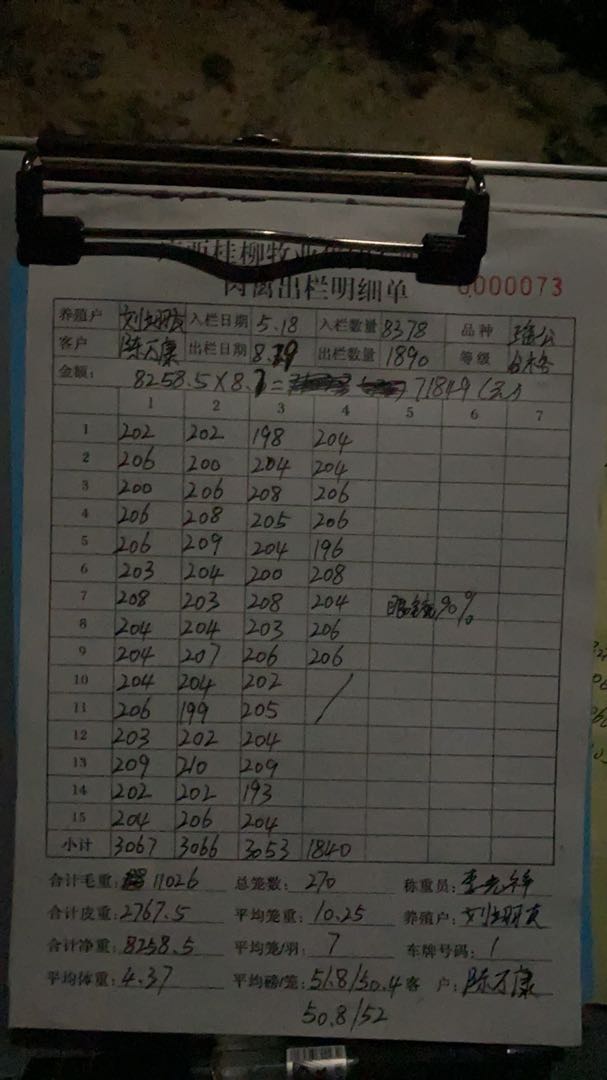 西桂柳牧业
肉禽出栏明细单 0000073
养殖户 入栏日期 5.18 入栏数量 8378 品种 瑶公
客户 陈万康 出栏日期 8.29 出栏数量 1890 等级 合格
金额: 8258.5×8.7= 71849(元)
1 2 3 4 5 6 7
1 202 202 198 204
2 206 200 204 204
3 200 206 208 206
4 206 208 205 206
5 206 209 204 196
6 203 204 200 208
7 208 203 208 204 90%
8 204 204 203 206
9 204 207 206 206
10 204 204 202
11 206 199 205
12 203 202 204
13 209 210 209
14 202 202 193
15 204 206 204
小计 3067 3066 3053 1840
合计毛重: 11026 总笼数: 270 称重员:
合计皮重: 2767.5 平均笼重: 10.25 养殖户:
合计净重: 8258.5 平均笼/羽: 7 车牌号码: 1
平均体重: 4.37 平均磅/笼: 51.8/50.4 客户: 陈万康
50.8/52